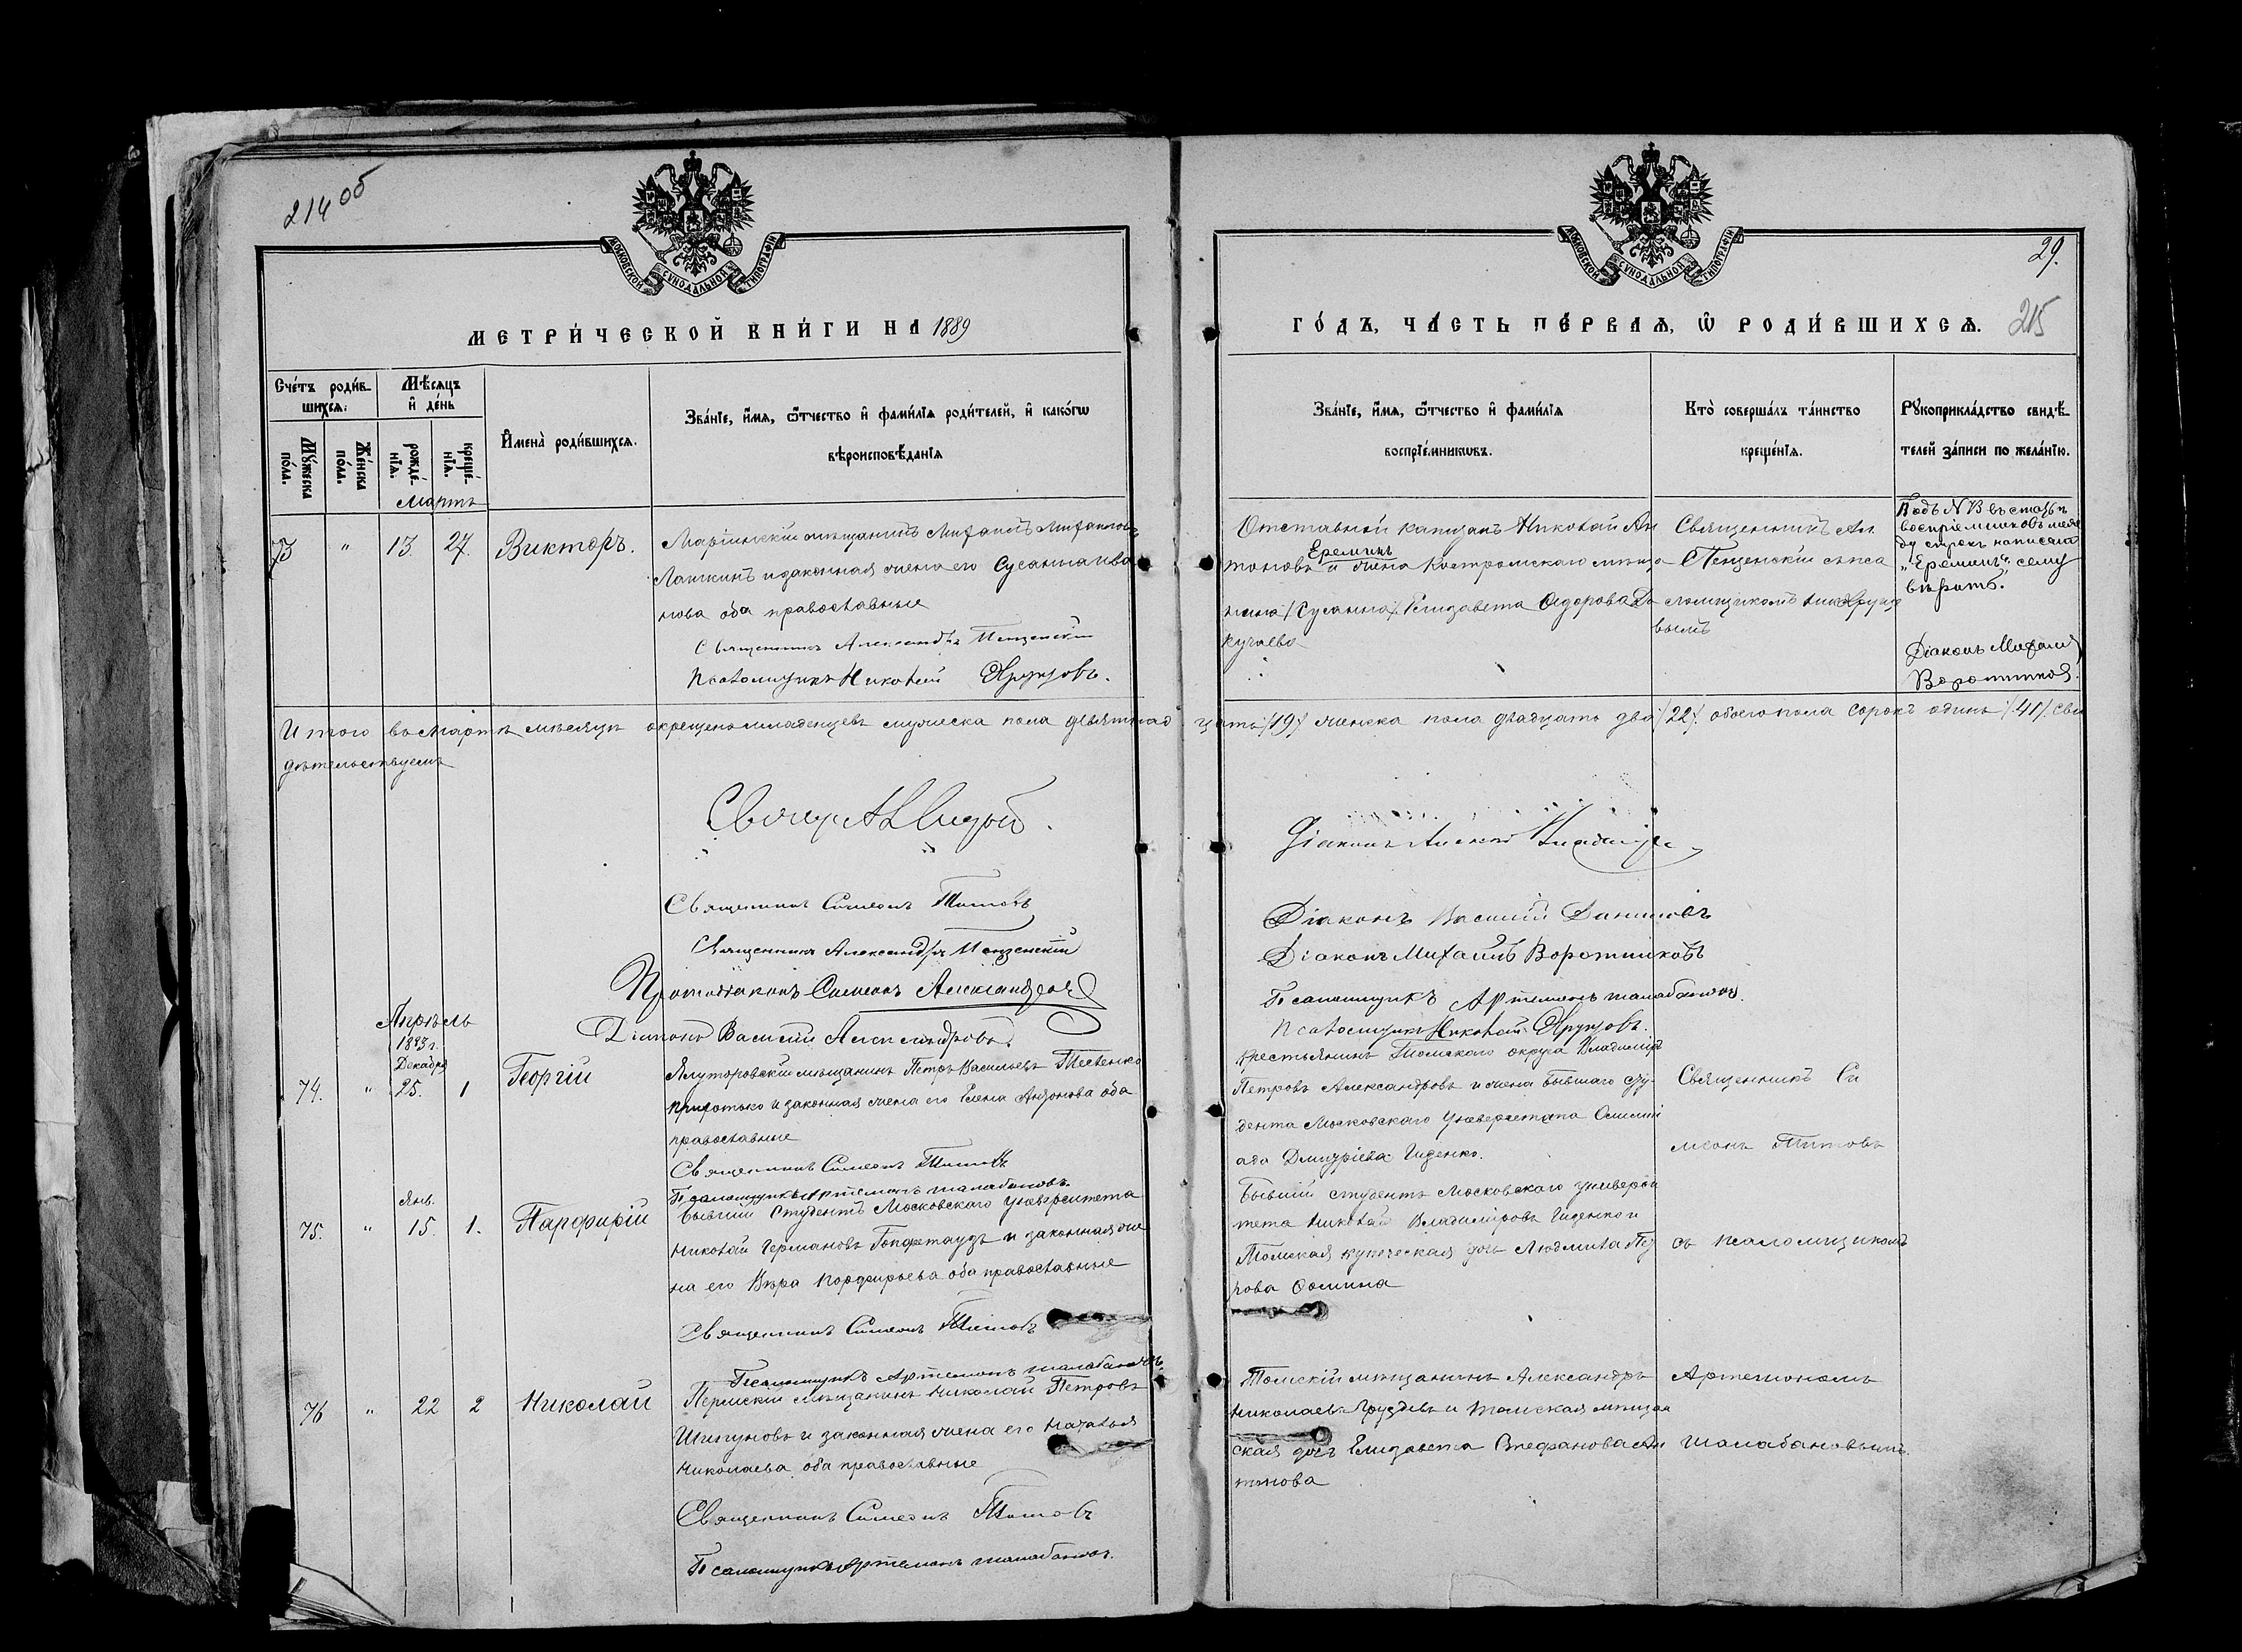 214 об
МОСКОВСКОЙ СУНОДАЛЬНОЙ ТИПОГРАФІИ
МЕТРИ́ЧЕСКОЙ КНИ́ГИ НА 1889
Сче́тъ роди́в-
шихся.
Мѣ́сяцъ
и҆ де́нь
Му́жеска
по́ла.
Же́нска
по́ла.
рожде́-
нія.
креще́-
нія.
И҆мена̀ роди́вшихся.
Зва́нїе, и҆́мя, ѻ҆́тчество и҆ фами́лїя роди́телей, и҆ како́гѡ
вѣроисповѣ́данїя
Мартъ
73 " 13. 27. Викторъ.
Маріинскій мѣщанинъ Михаилъ Михаиловъ
Лапкинъ и законная жена его Сусанна Ива
нова оба православные
Священникъ Александръ Пензенскій
Псаломщикъ Николай Хрущовъ.
Итого въ Мартѣ мѣсяцѣ окрещено младенцевъ мужеска пола девятнад
дѣтельствуемъ
Священникъ Симеонъ Титовъ
Священникъ Александръ Пензенскій
Протодіаконъ Симеонъ Александровъ
Діаконъ Василій Александровъ
Апрѣль
1893 г.
Декабря
74. " 25. 1 Георгій
Ялуторовскій мѣщанинъ Петръ Васильевъ
и законная жена его Елена Антонова оба
православные
Священникъ Симеонъ Титовъ
Псаломщикъ Артемонъ Шалабановъ
Янв.
75. " 15. 1. Парфирій
Бывшій Студентъ Московскаго Университета
Николай Германовъ и законная же
на его Вѣра Порфирьева оба православные
Священникъ Симеонъ Титовъ
Псаломщикъ Артемонъ Шалабановъ
76 " 22 2 Николай
Пермскій мѣщанинъ Николай Петровъ
Шипуновъ и законная жена его Наталья
Николаева оба православные
Священникъ Симеонъ Титовъ
Псаломщикъ Артемонъ Шалабановъ
МОСКОВСКОЙ СУНОДАЛЬНОЙ ТИПОГРАФІИ
29.
215
ГО́ДЪ, ЧА́СТЬ ПЕ́РВАЯ, Ѡ҆ РОДИ́ВШИХСЯ.
Зва́нїе, и҆́мя, ѻ҆́тчество и҆ фами́лїя
воспрїе́мникѡвъ.
Кто̀ соверша́лъ та́инство
креще́нїя.
Рꙋкоприкла́дство свидѣ́-
телей за́писи по жела́нїю.
Отставной капитанъ Николай Ан
Ереминъ
тоновъ и жена Костромскаго мѣща
нина Елизавета Сидорова
Священникъ Ал.
Пензенскій съ пса
ломщикомъ Ник Хрущо
вымъ
Подъ № 73 въ статьѣ
воспріемниковъ меж
ду строкъ написана
„Ереминъ“, сему
вѣрить.
Діаконъ Михаилъ
Воротниковъ.
цать /19/ женска пола двадцать два /22/. обоего пола сорокъ одинъ /41/. Сви
Діаконъ Василій Даниловъ
Діаконъ Михаилъ Воротниковъ
Псаломщикъ Артемонъ Шалабановъ.
Псаломщикъ Николай Хрущовъ.
Крестьянинъ Томскаго округа Владиміръ
Петровъ Александровъ и жена бывшаго сту-
дента Московскаго Университета
Дмитріева Гиденко.
Священникъ Си
меонъ Титовъ
Бывшій студентъ Московскаго универси
тета Николай Владиміровъ Гиденко и
Томская купеческая дочь Людмила Пет
рова Фомина
съ псаломщикомъ
Томскій мѣщанинъ Александръ
Николаевъ Груздевъ и томская мѣщан
ская дочь Елизавета Стефанова Ан
тонова
Артемономъ
Шалабановымъ.